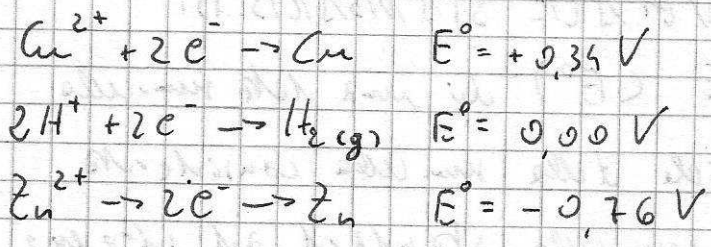 Cu²⁺ + 2e⁻ → Cu E° = +0,34 V
2H⁺ + 2e⁻ → H₂(g) E° = 0,00 V
Zn²⁺ → 2e⁻ → Zn E° = -0,76 V